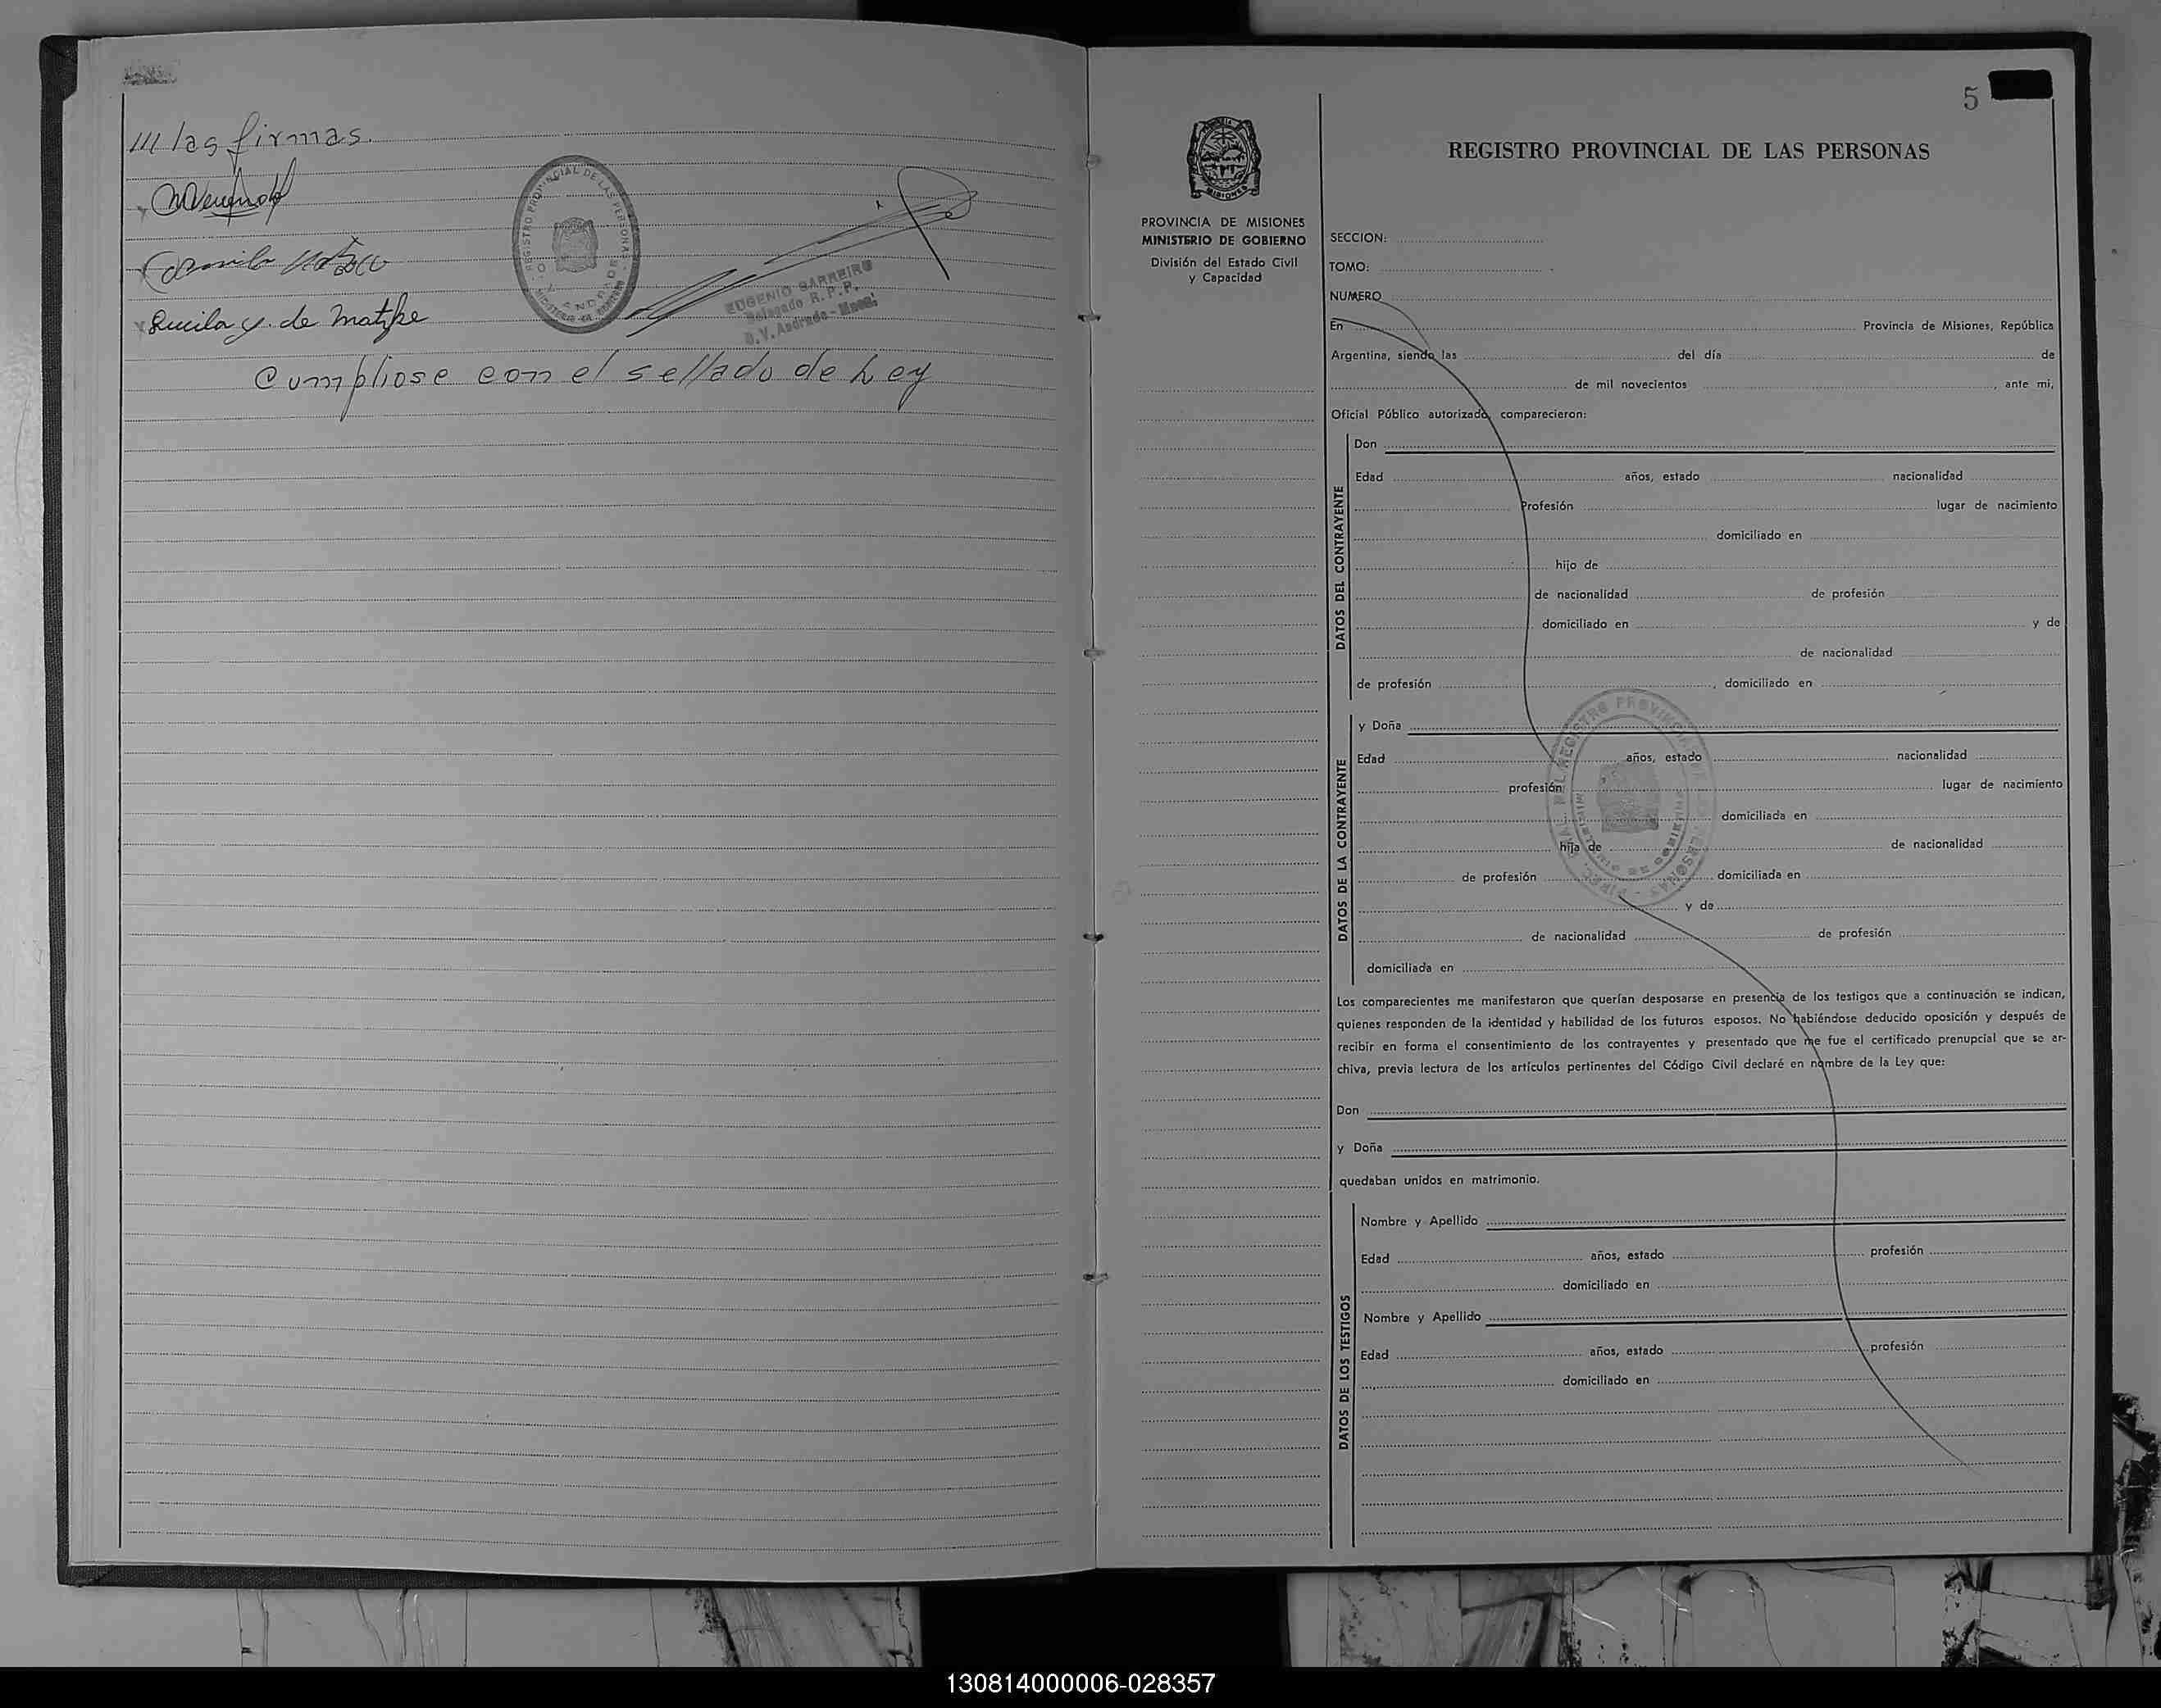 /// las firmas.
Lucila y. de Matzke
Cumpliose con el sellado de Ley
REGISTRO PROVINCIAL DE LAS PERSONAS
EUGENIO BARREIRO
Delegado R. P. P.
O. V. Andrade - Mnes.
5
PROVINCIA DE MISIONES
MINISTERIO DE GOBIERNO
División del Estado Civil
y Capacidad
REGISTRO PROVINCIAL DE LAS PERSONAS
SECCION:
TOMO:
NUMERO
En Provincia de Misiones, República
Argentina, siendo las del día de
de mil novecientos , ante mi,
Oficial Público autorizado, comparecieron:
DATOS DEL CONTRAYENTE
Don
Edad años, estado nacionalidad
Profesión lugar de nacimiento
domiciliado en
hijo de
de nacionalidad de profesión
domiciliado en y de
de nacionalidad
de profesión , domiciliado en
DATOS DE LA CONTRAYENTE
y Doña
Edad años, estado nacionalidad
profesión lugar de nacimiento
domiciliada en
hija de de nacionalidad
de profesión domiciliada en
y de
de nacionalidad de profesión
domiciliada en
Los comparecientes me manifestaron que querían desposarse en presencia de los testigos que a continuación se indican,
quienes responden de la identidad y habilidad de los futuros esposos. No habiéndose deducido oposición y después de
recibir en forma el consentimiento de los contrayentes y presentado que me fue el certificado prenupcial que se ar-
chiva, previa lectura de los artículos pertinentes del Código Civil declaré en nombre de la Ley que:
Don
y Doña
quedaban unidos en matrimonio.
DATOS DE LOS TESTIGOS
Nombre y Apellido
Edad años, estado profesión
domiciliado en
Nombre y Apellido
Edad años, estado profesión
domiciliado en
130814000006-028357